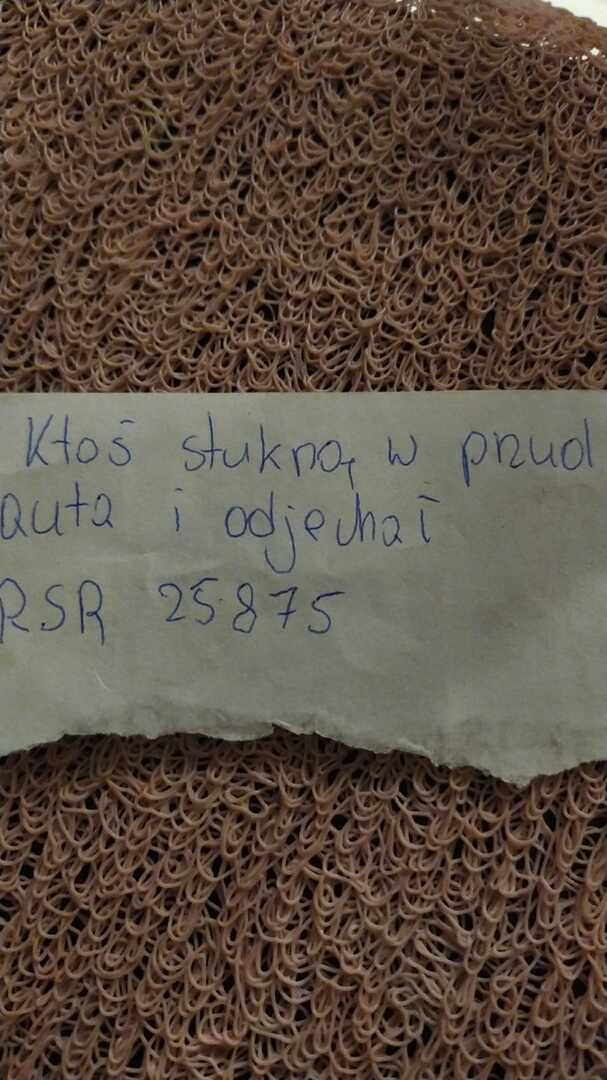 Ktoś stukną w przud
auta i odjechał
RSR 25875